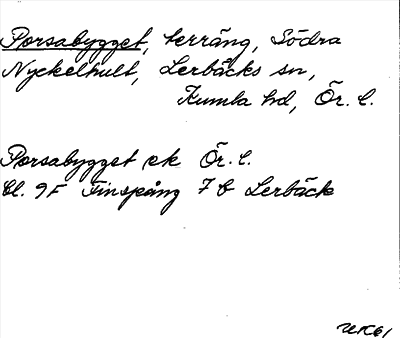 Porsabygget, terräng, Södra
Nyckelhult, Lerbäcks sn,
Kumla hd, Ör. l.
Porsabygget ek Ör. l.
Bl. 9F Finspång 7 b Lerbäck